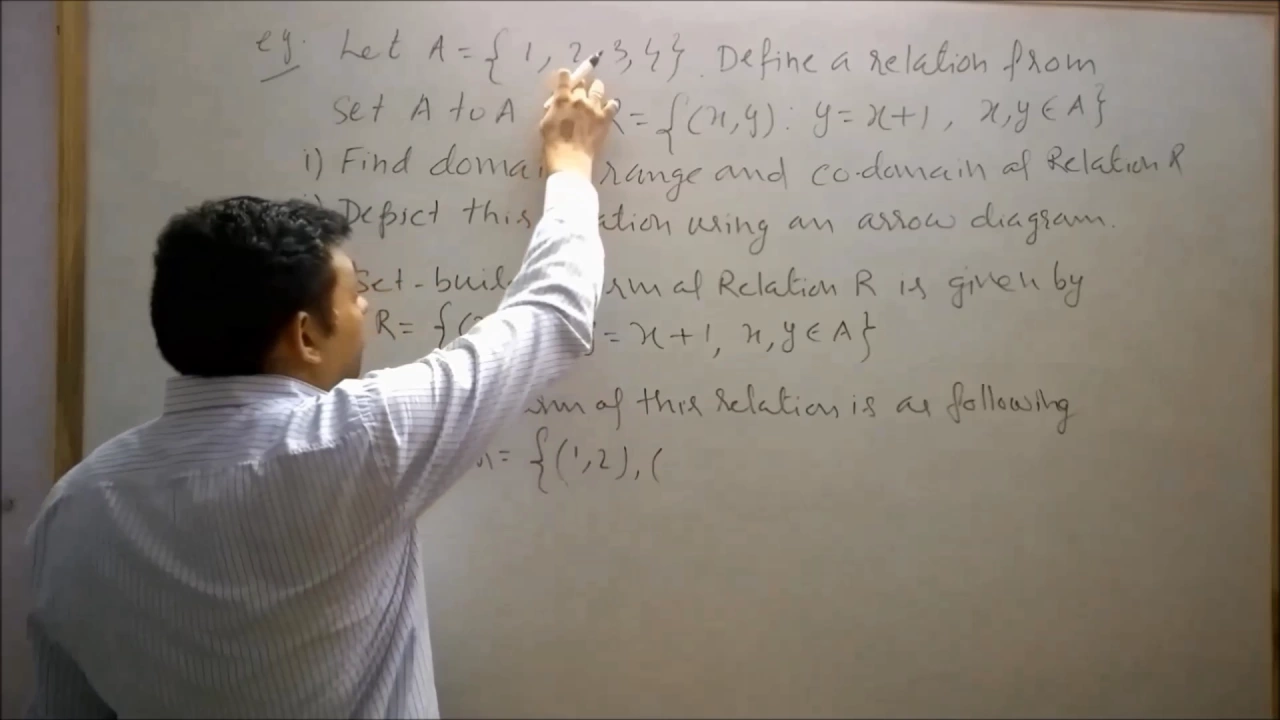 eg. Let A = { 1, 2, 3, 4 }. Define a relation from
set A to A R = {(x, y) : y = x + 1, x, y ∈ A}
i) Find domai range and co-domain of Relation R
Depict this using an arrow diagram.
Set-buil of Relation R is given by
R = { = x + 1, x, y ∈ A}
of this relation is as following
= {(1, 2), (